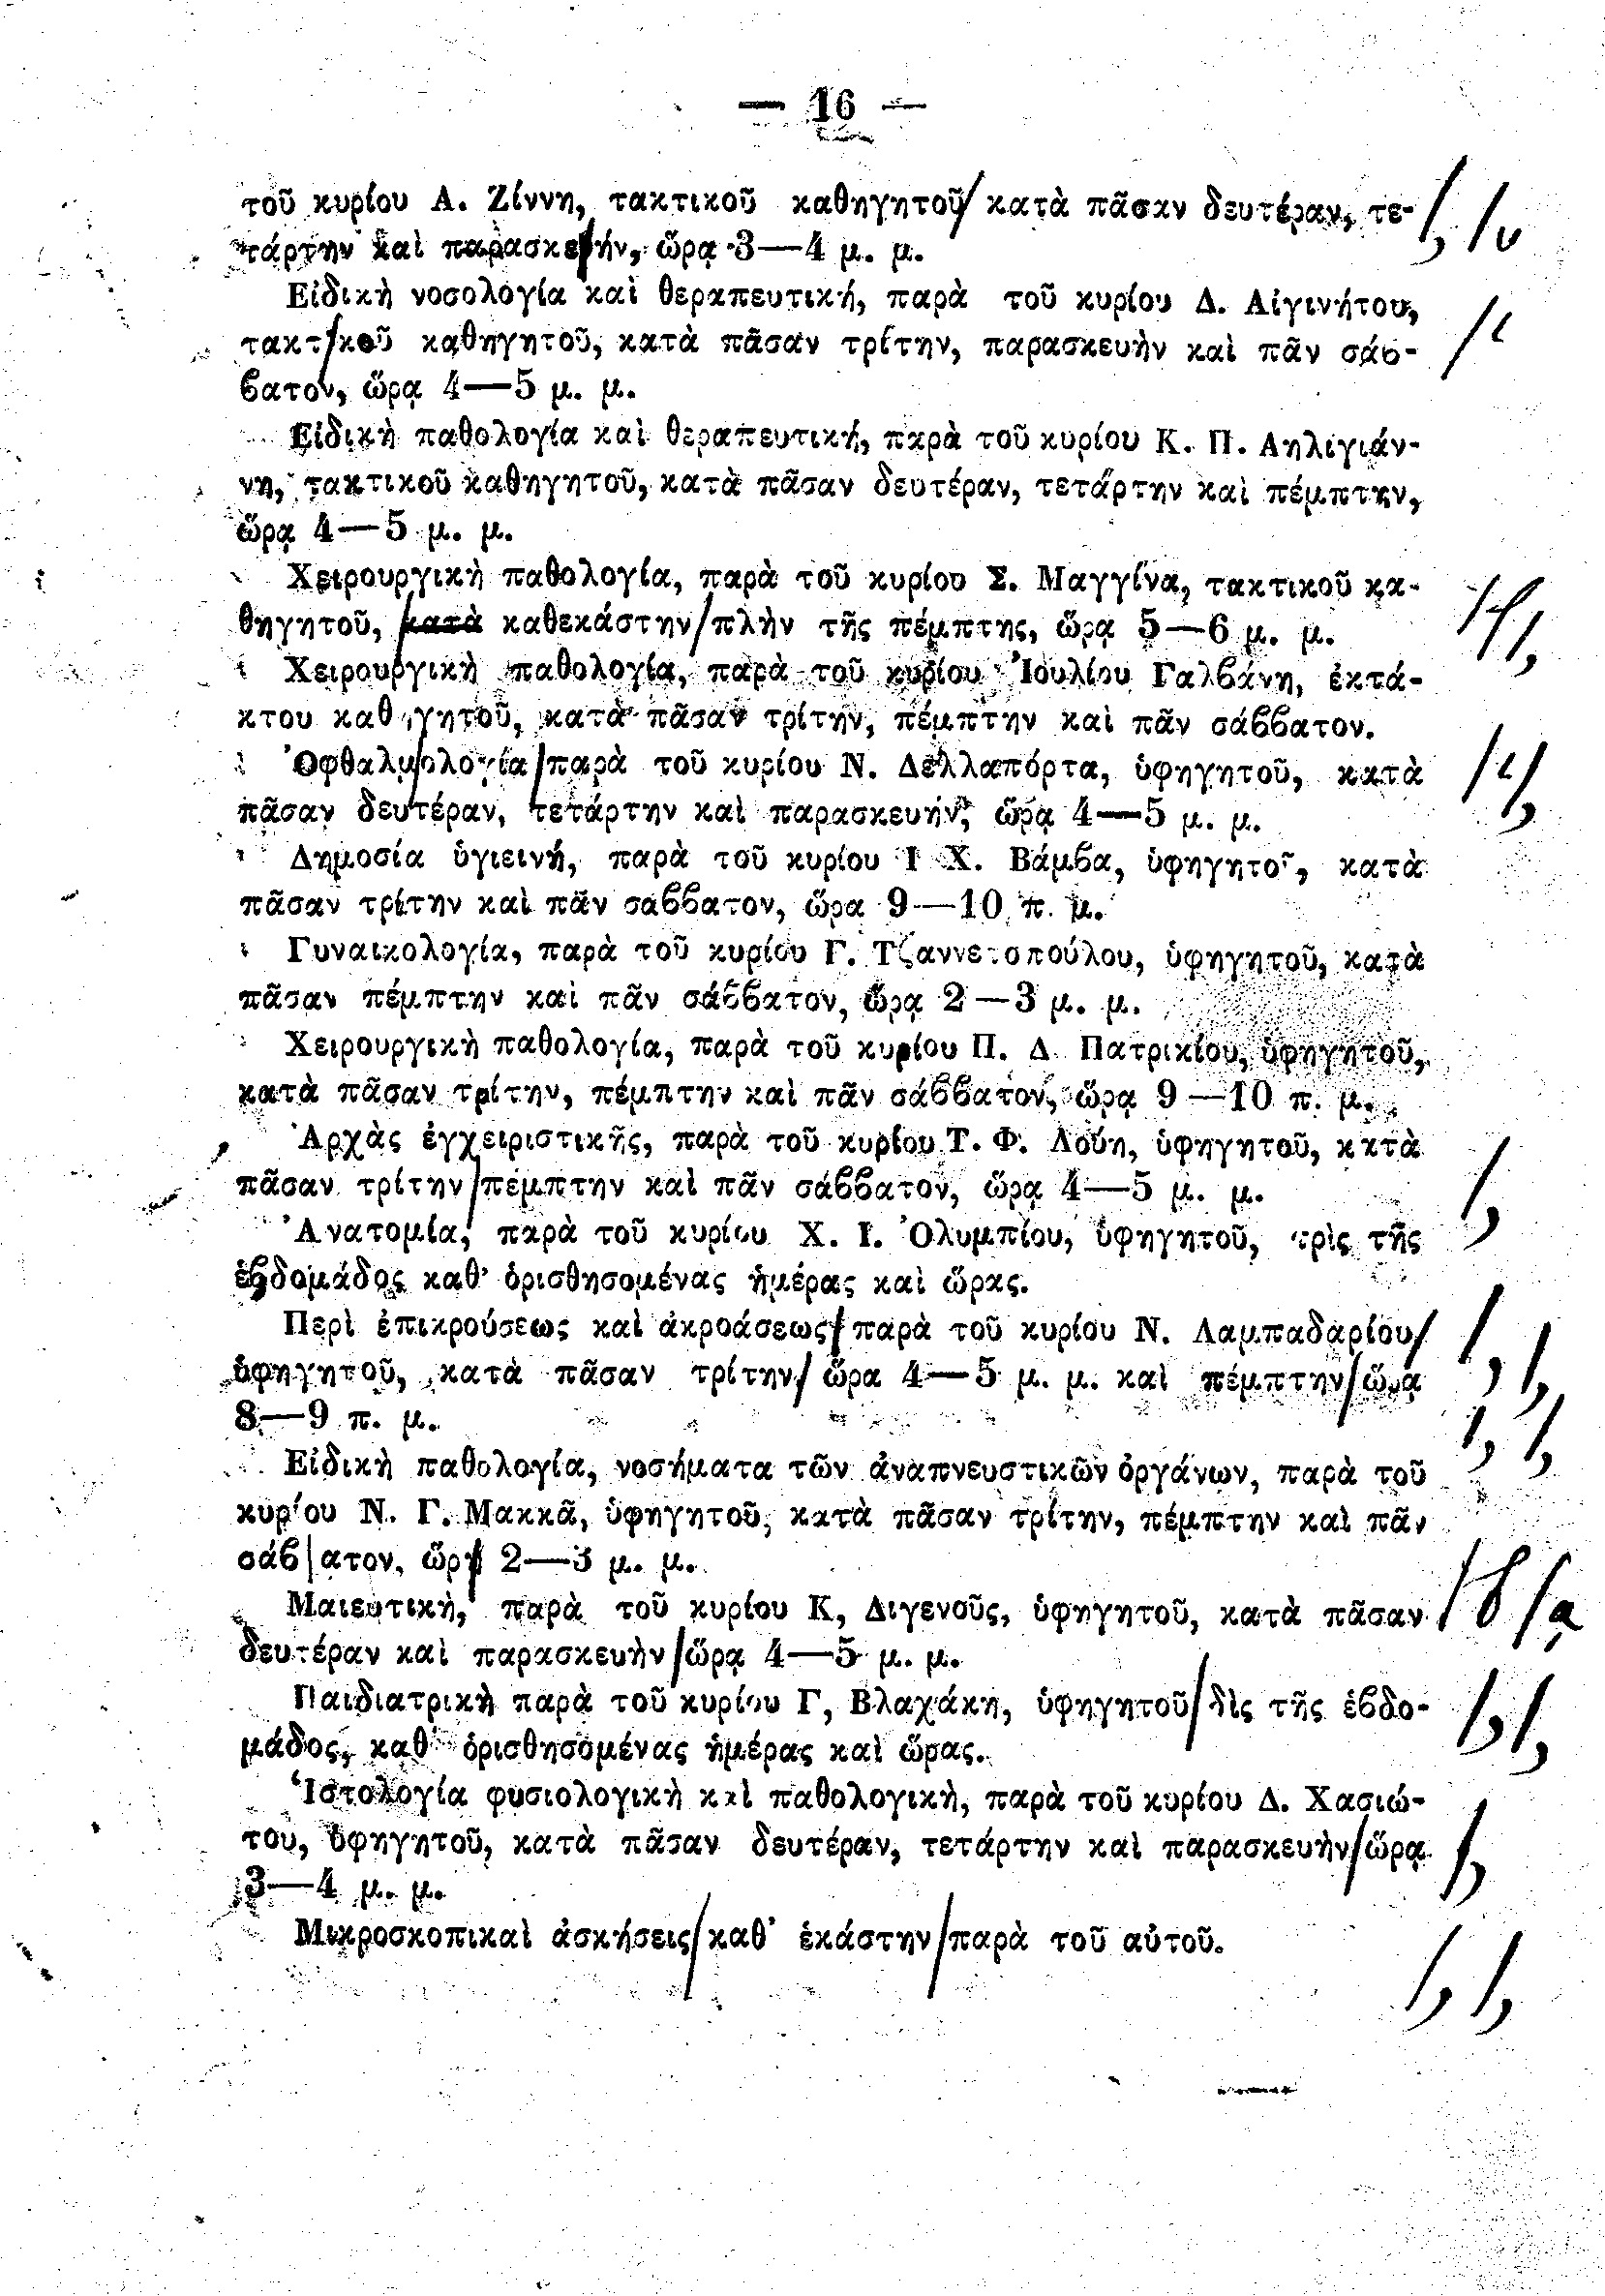 — 16 —
τοῦ κυρίου Α. Ζίννη, τακτικοῦ καθηγητοῦ/ κατὰ πᾶσαν δευτέραν, τε- /, /υ
τάρτην καὶ παρασκε/ήν, ὥρᾳ 3—4 μ. μ.
Εἰδικὴ νοσολογία καὶ θεραπευτική, παρὰ τοῦ κυρίου Δ. Αἰγινήτου,
τακτ/κοῦ καθηγητοῦ, κατὰ πᾶσαν τρίτην, παρασκευὴν καὶ πᾶν σάβ- /ι
βατον, ὥρᾳ 4—5 μ. μ.
Εἰδικὴ παθολογία καὶ θεραπευτική, παρὰ τοῦ κυρίου Κ. Π. Δηλιγιάν-
νη, τακτικοῦ καθηγητοῦ, κατὰ πᾶσαν δευτέραν, τετάρτην καὶ πέμπτην,
ὥρᾳ 4—5 μ. μ.
Χειρουργικὴ παθολογία, παρὰ τοῦ κυρίου Σ. Μαγγίνα, τακτικοῦ κα-
θηγητοῦ, κατὰ καθεκάστην/πλὴν τῆς πέμπτης, ὥρᾳ 5—6 μ. μ.
Χειρουργικὴ παθολογία, παρὰ τοῦ κυρίου Ἰουλίου Γαλβάνη, ἐκτά-
κτου καθηγητοῦ, κατὰ πᾶσαν τρίτην, πέμπτην καὶ πᾶν σάββατον.
Ὀφθαλμ/ολογία/παρὰ τοῦ κυρίου Ν. Δελλαπόρτα, ὑφηγητοῦ, κατὰ /ι/,
πᾶσαν δευτέραν, τετάρτην καὶ παρασκευήν, ὥρᾳ 4—5 μ. μ.
Δημοσία ὑγιεινή, παρὰ τοῦ κυρίου Ι Χ. Βάμβα, ὑφηγητοῦ, κατὰ
πᾶσαν τρίτην καὶ πᾶν σάββατον, ὥρα 9—10 π. μ.
Γυναικολογία, παρὰ τοῦ κυρίου Γ. Τζαννετοπούλου, ὑφηγητοῦ, κατὰ
πᾶσαν πέμπτην καὶ πᾶν σάββατον, ὥρᾳ 2—3 μ. μ.
Χειρουργικὴ παθολογία, παρὰ τοῦ κυρίου Π. Δ. Πατρικίου, ὑφηγητοῦ,
κατὰ πᾶσαν τρίτην, πέμπτην καὶ πᾶν σάββατον, ὥρᾳ 9—10 π. μ.
Ἀρχὰς ἐγχειριστικῆς, παρὰ τοῦ κυρίου Τ. Φ. Λούη, ὑφηγητοῦ, κατὰ
πᾶσαν τρίτην/πέμπτην καὶ πᾶν σάββατον, ὥρᾳ 4—5 μ. μ. /,
Ἀνατομία, παρὰ τοῦ κυρίου Χ. Ι. Ὀλυμπίου, ὑφηγητοῦ, τρὶς τῆς
ἑβδομάδος καθ' ὁρισθησομένας ἡμέρας καὶ ὥρας.
Περὶ ἐπικρούσεως καὶ ἀκροάσεως/παρὰ τοῦ κυρίου Ν. Λαμπαδαρίου/ /, /,
ὑφηγητοῦ, κατὰ πᾶσαν τρίτην/ ὥρα 4—5 μ. μ. καὶ πέμπτην/ὥρᾳ
8—9 π. μ. /, /,
Εἰδικὴ παθολογία, νοσήματα τῶν ἀναπνευστικῶν ὀργάνων, παρὰ τοῦ
κυρίου Ν. Γ. Μακκᾶ, ὑφηγητοῦ, κατὰ πᾶσαν τρίτην, πέμπτην καὶ πᾶν
σάβ/ατον, ὥρ/ 2—3 μ. μ. /β /ᾳ
Μαιευτική, παρὰ τοῦ κυρίου Κ, Διγενοῦς, ὑφηγητοῦ, κατὰ πᾶσαν
δευτέραν καὶ παρασκευὴν/ὥρᾳ 4—5 μ. μ.
Παιδιατρικὴ παρὰ τοῦ κυρίου Γ, Βλαχάκη, ὑφηγητοῦ/δὶς τῆς ἑβδο- /, /,
μάδος, καθ' ὁρισθησομένας ἡμέρας καὶ ὥρας.
Ἱστολογία φυσιολογικὴ καὶ παθολογική, παρὰ τοῦ κυρίου Δ. Χασιώ-
του, ὑφηγητοῦ, κατὰ πᾶσαν δευτέραν, τετάρτην καὶ παρασκευὴν/ὥρᾳ /,
3—4 μ. μ.
Μικροσκοπικαὶ ἀσκήσεις/καθ' ἑκάστην/παρὰ τοῦ αὐτοῦ. /, /,